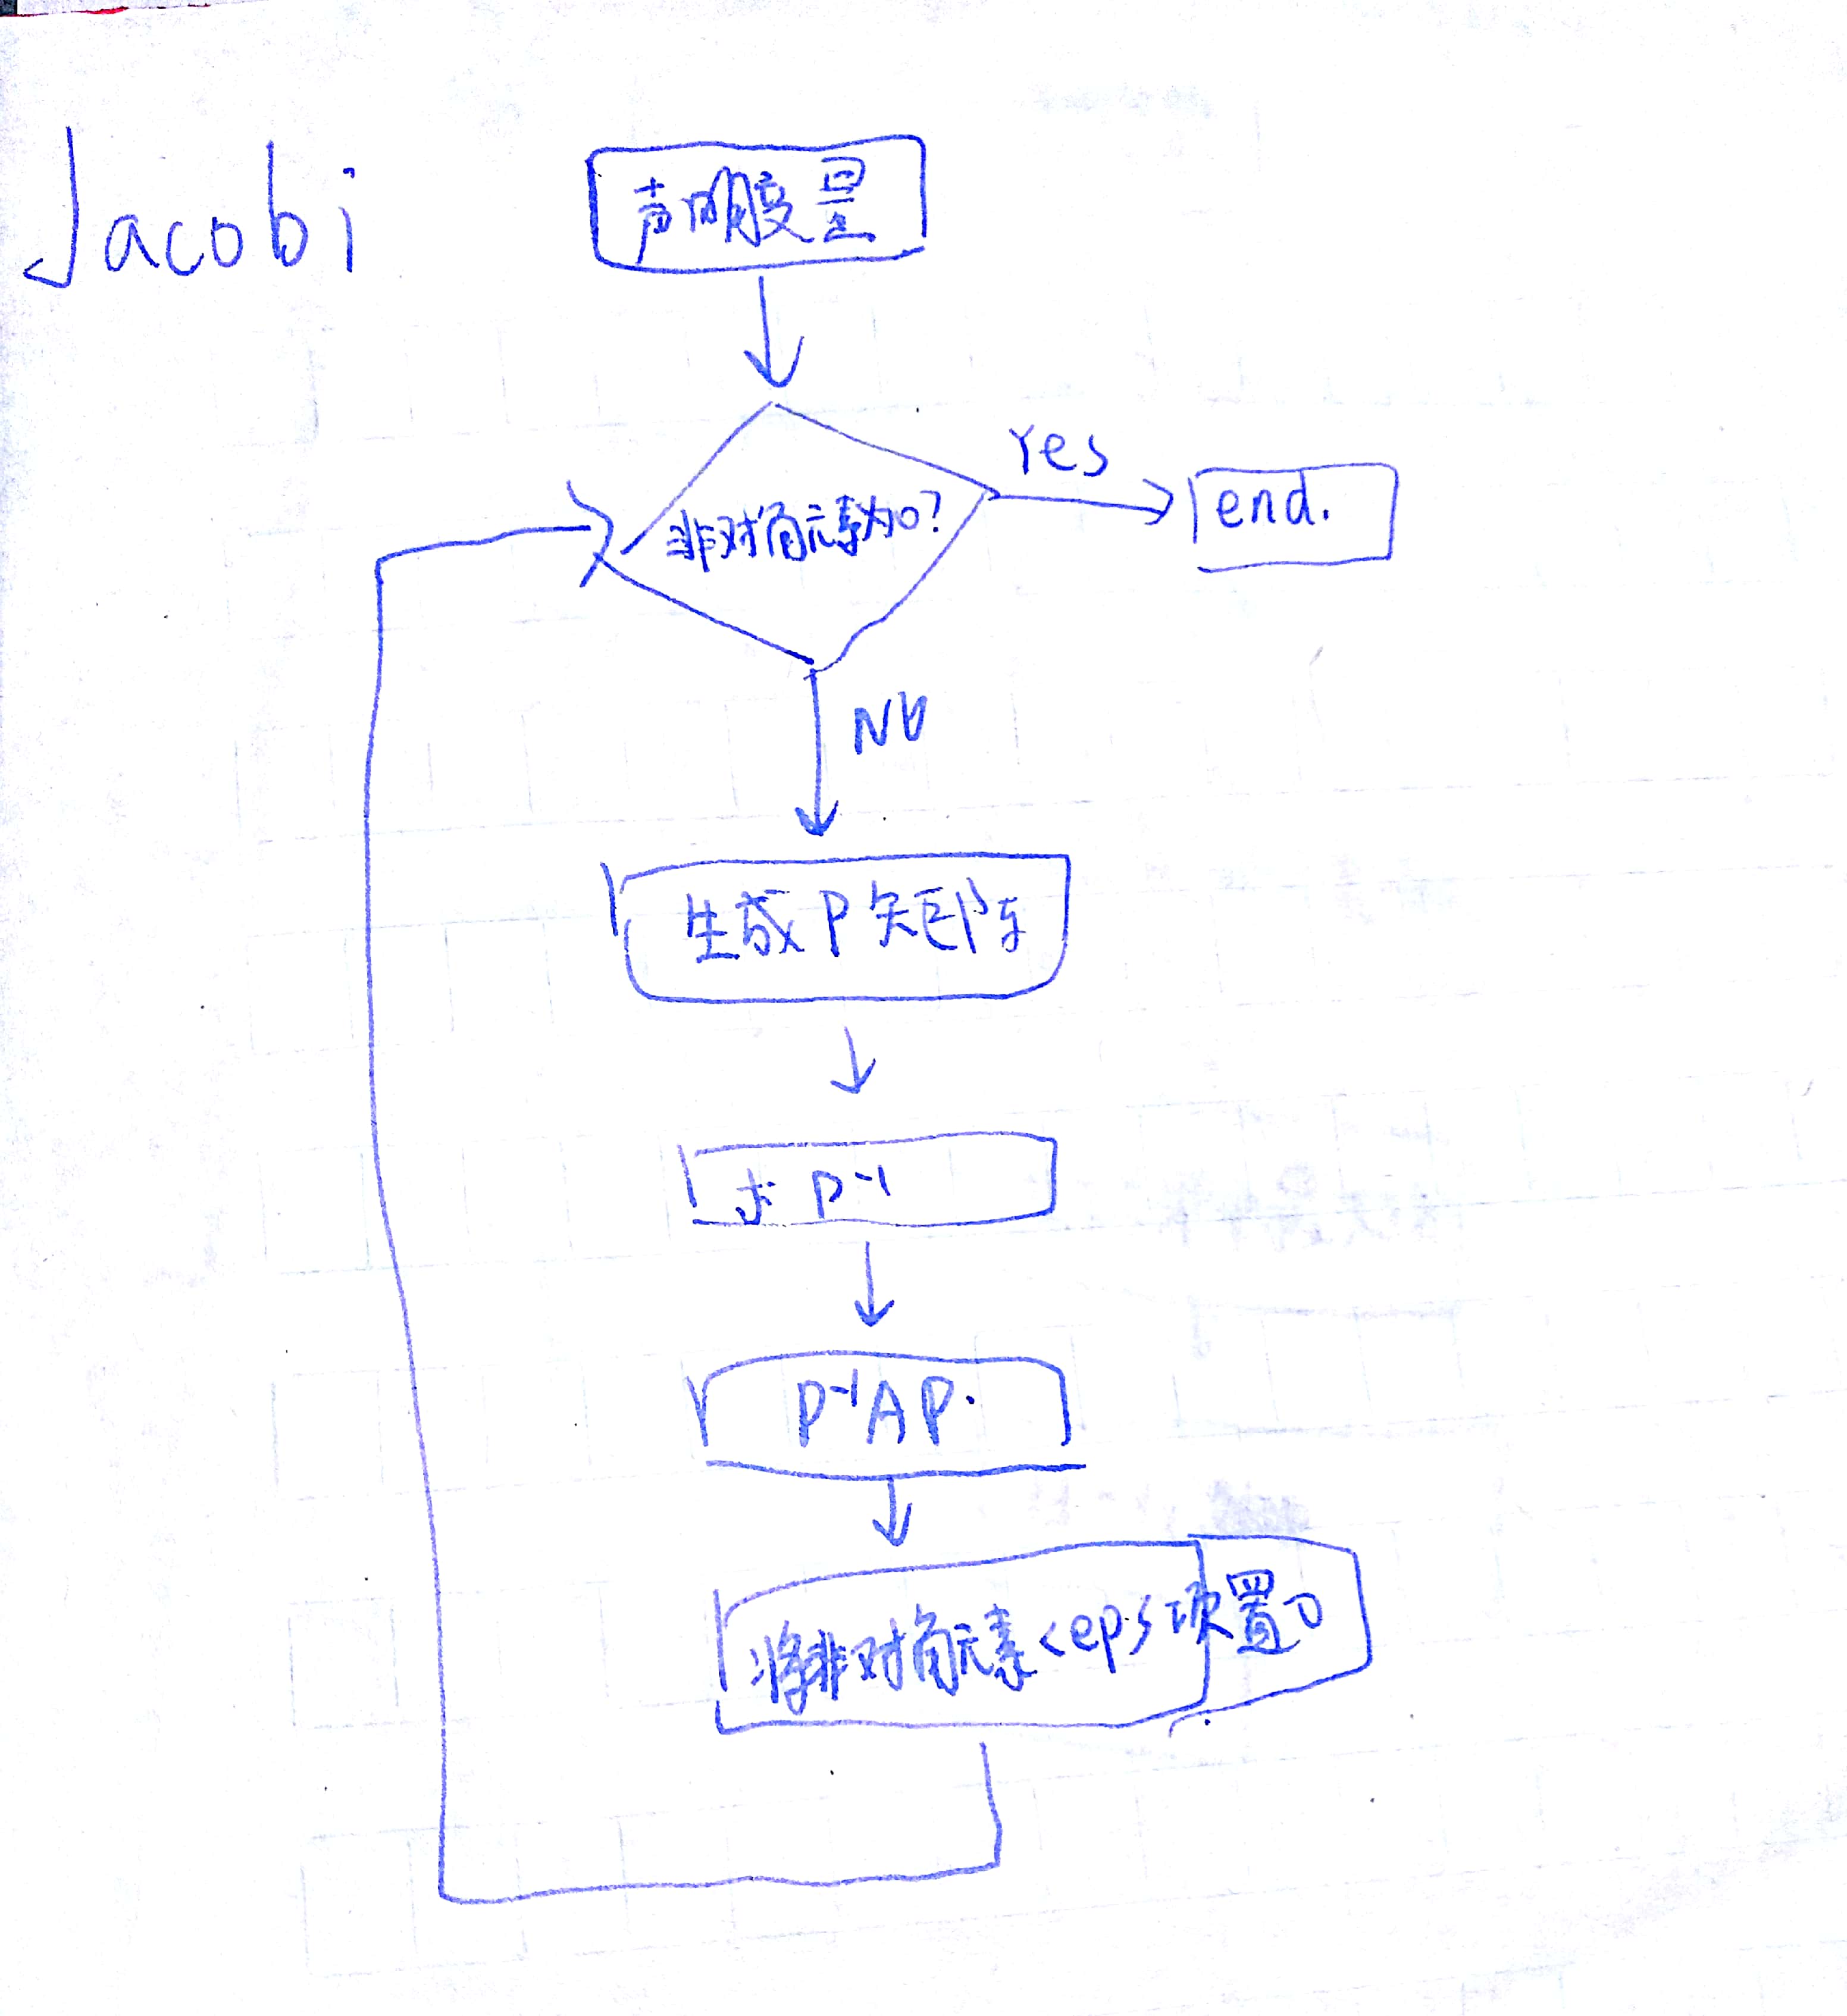 Jacobi
声明度量
非对角元素为0?
Yes
end.
No
生成P矩阵
求 P⁻¹
P⁻¹AP.
将非对角元素<eps项置0